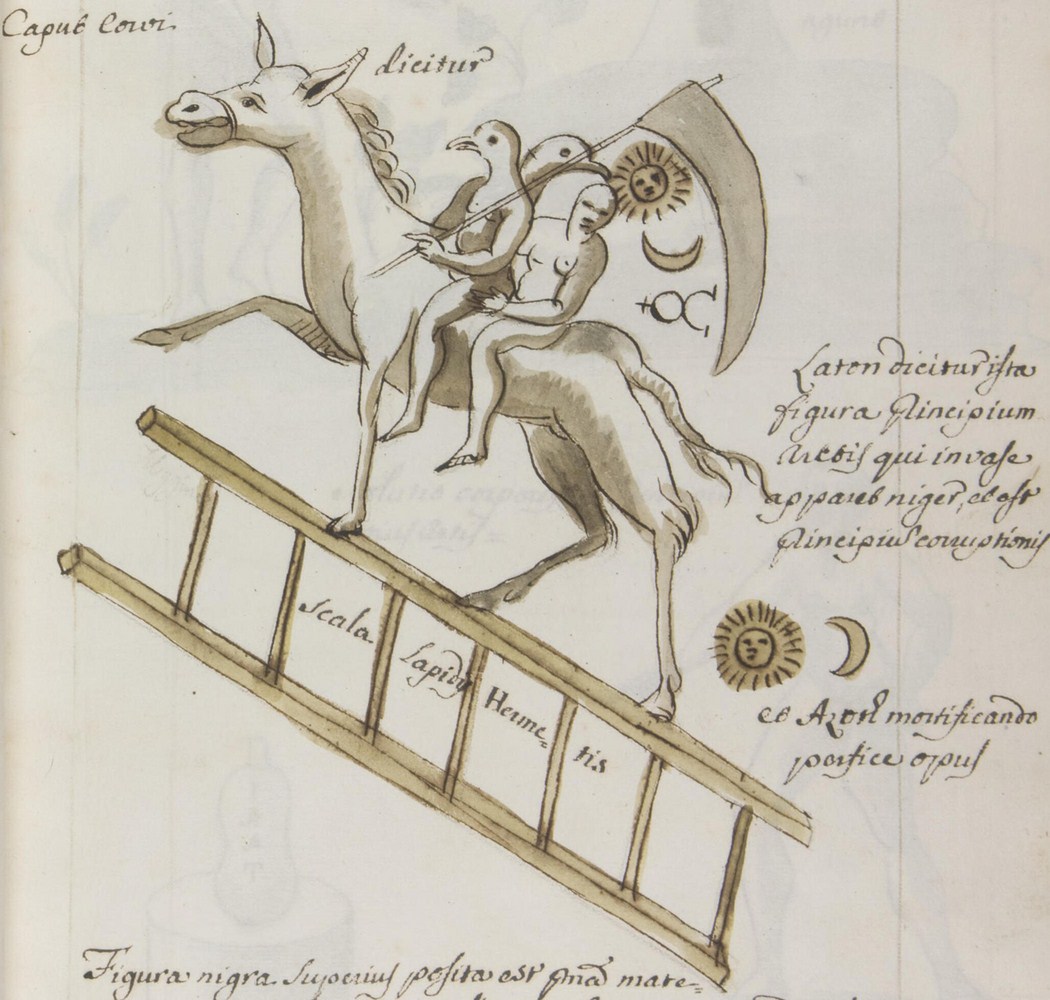 Caput corvi
dicitur
Laton dicitur ista
figura principium
Nebis qui in vase
apparet niger, et est
principiũ corruptionis
et Azoth mortificando
perfice opus
Scala
Lapidũ
Herme=
tis
Figura nigra superius posita est mate=